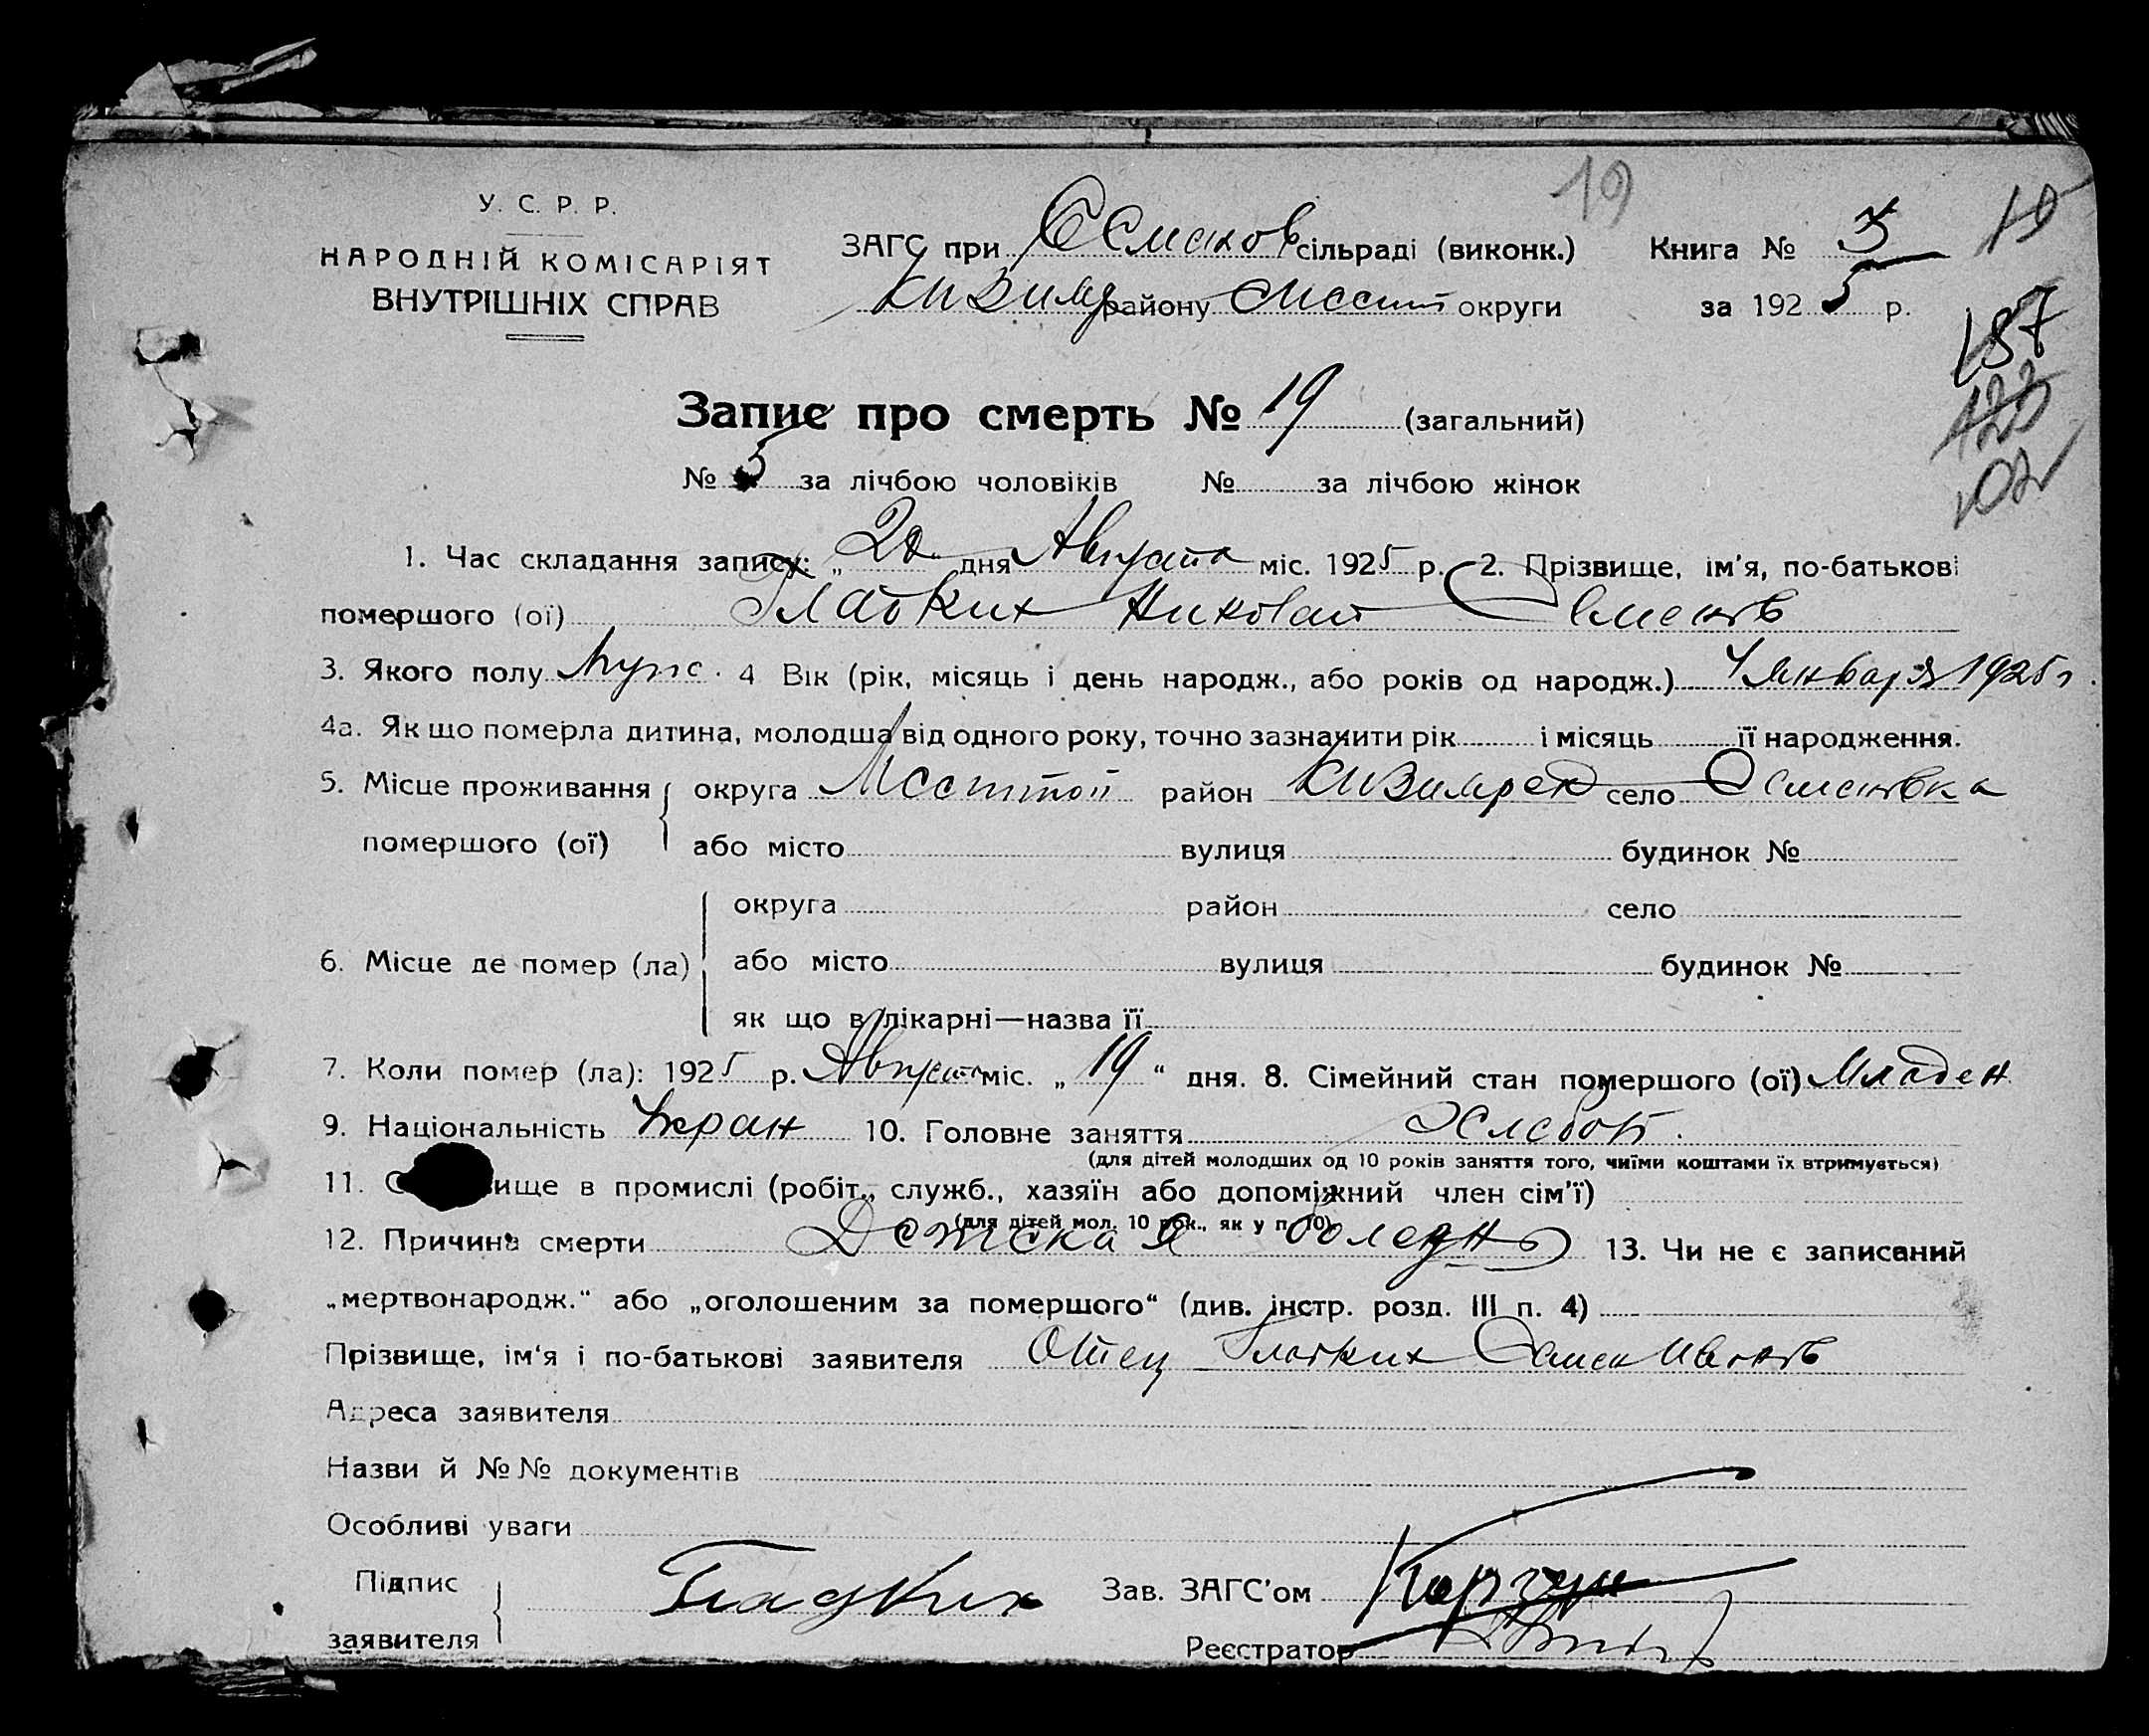 19
У. С. Р. Р.
НАРОДНІЙ КОМІСАРІЯТ
ВНУТРІШНІХ СПРАВ
ЗАГС при сільраді (виконк.)
району округи
Книга № 3
за 1925 р.
187
Запис про смерть № 19 (загальний)
№ 5 за лічбою чоловіків № за лічбою жінок
1. Час складання запису: „ 20 дня Августа міс. 1925 р. 2. Прізвище, ім'я, по-батькові
помершого (ої) Гладких Николай Семенов
3. Якого полу Муж. 4 Вік (рік, місяць і день народж., або років од народж.) Января 1925 г.
4а. Як що померла дитина, молодша від одного року, точно зазначити рік і місяць її народження.
5. Місце проживання округа район село
помершого (ої) або місто вулиця будинок №
округа район село
6. Місце де помер (ла) або місто вулиця будинок №
як що в лікарні—назва її
7. Коли помер (ла): 1925 р. Августа міс. „ 19 “ дня. 8. Сімейний стан помершого (ої) Младен
9. Національність Укран 10. Головне заняття Хлебоп.
(для дітей молодших од 10 років заняття того, чиїми коштами їх втримується)
11. ище в промислі (робіт., служб., хазяїн або допоміжний член сім'ї)
(для дітей мол. 10 рок., як у п. 10)
12. Причина смерти Детская болезнь 13. Чи не є записаний
„мертвонародж.“ або „оголошеним за помершого“ (див. інстр. розд. III п. 4)
Прізвище, ім'я і по-батькові заявителя Отец Гладких Семен Иванов
Адреса заявителя
Назви й №№ документів
Особливі уваги
Підпис
заявителя
Гладких
Зав. ЗАГС'ом
Реєстратор